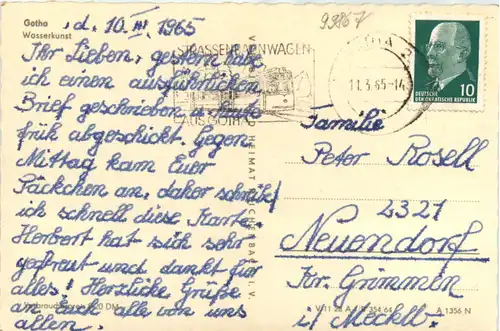 Gotha
Wasserkunst
d. 10. III. 1965
99867
STRASSENBAHNWAGEN
AUS GOTHA
11.3.65-14
10
DEUTSCHE
DEMOKRATISCHE REPUBLIK
Ihr Lieben, gestern habe
ich einen ausführlichen
Brief geschrieben u. heute
früh abgeschickt. Gegen
Mittag kam Euer
Päckchen an, daher schreibe
ich schnell diese Karte.
Herbert hat sich sehr
gefreut und dankt für
alles! Herzliche Grüße
an Euch alle von uns
allen.
Familie
Peter Rosell
2321
Neuendorf
Kr. Grimmen
i. Mecklb.
Verbraucherpreis 0,20 DM
V 11 28 A 1/B 354/64
A 1356 N